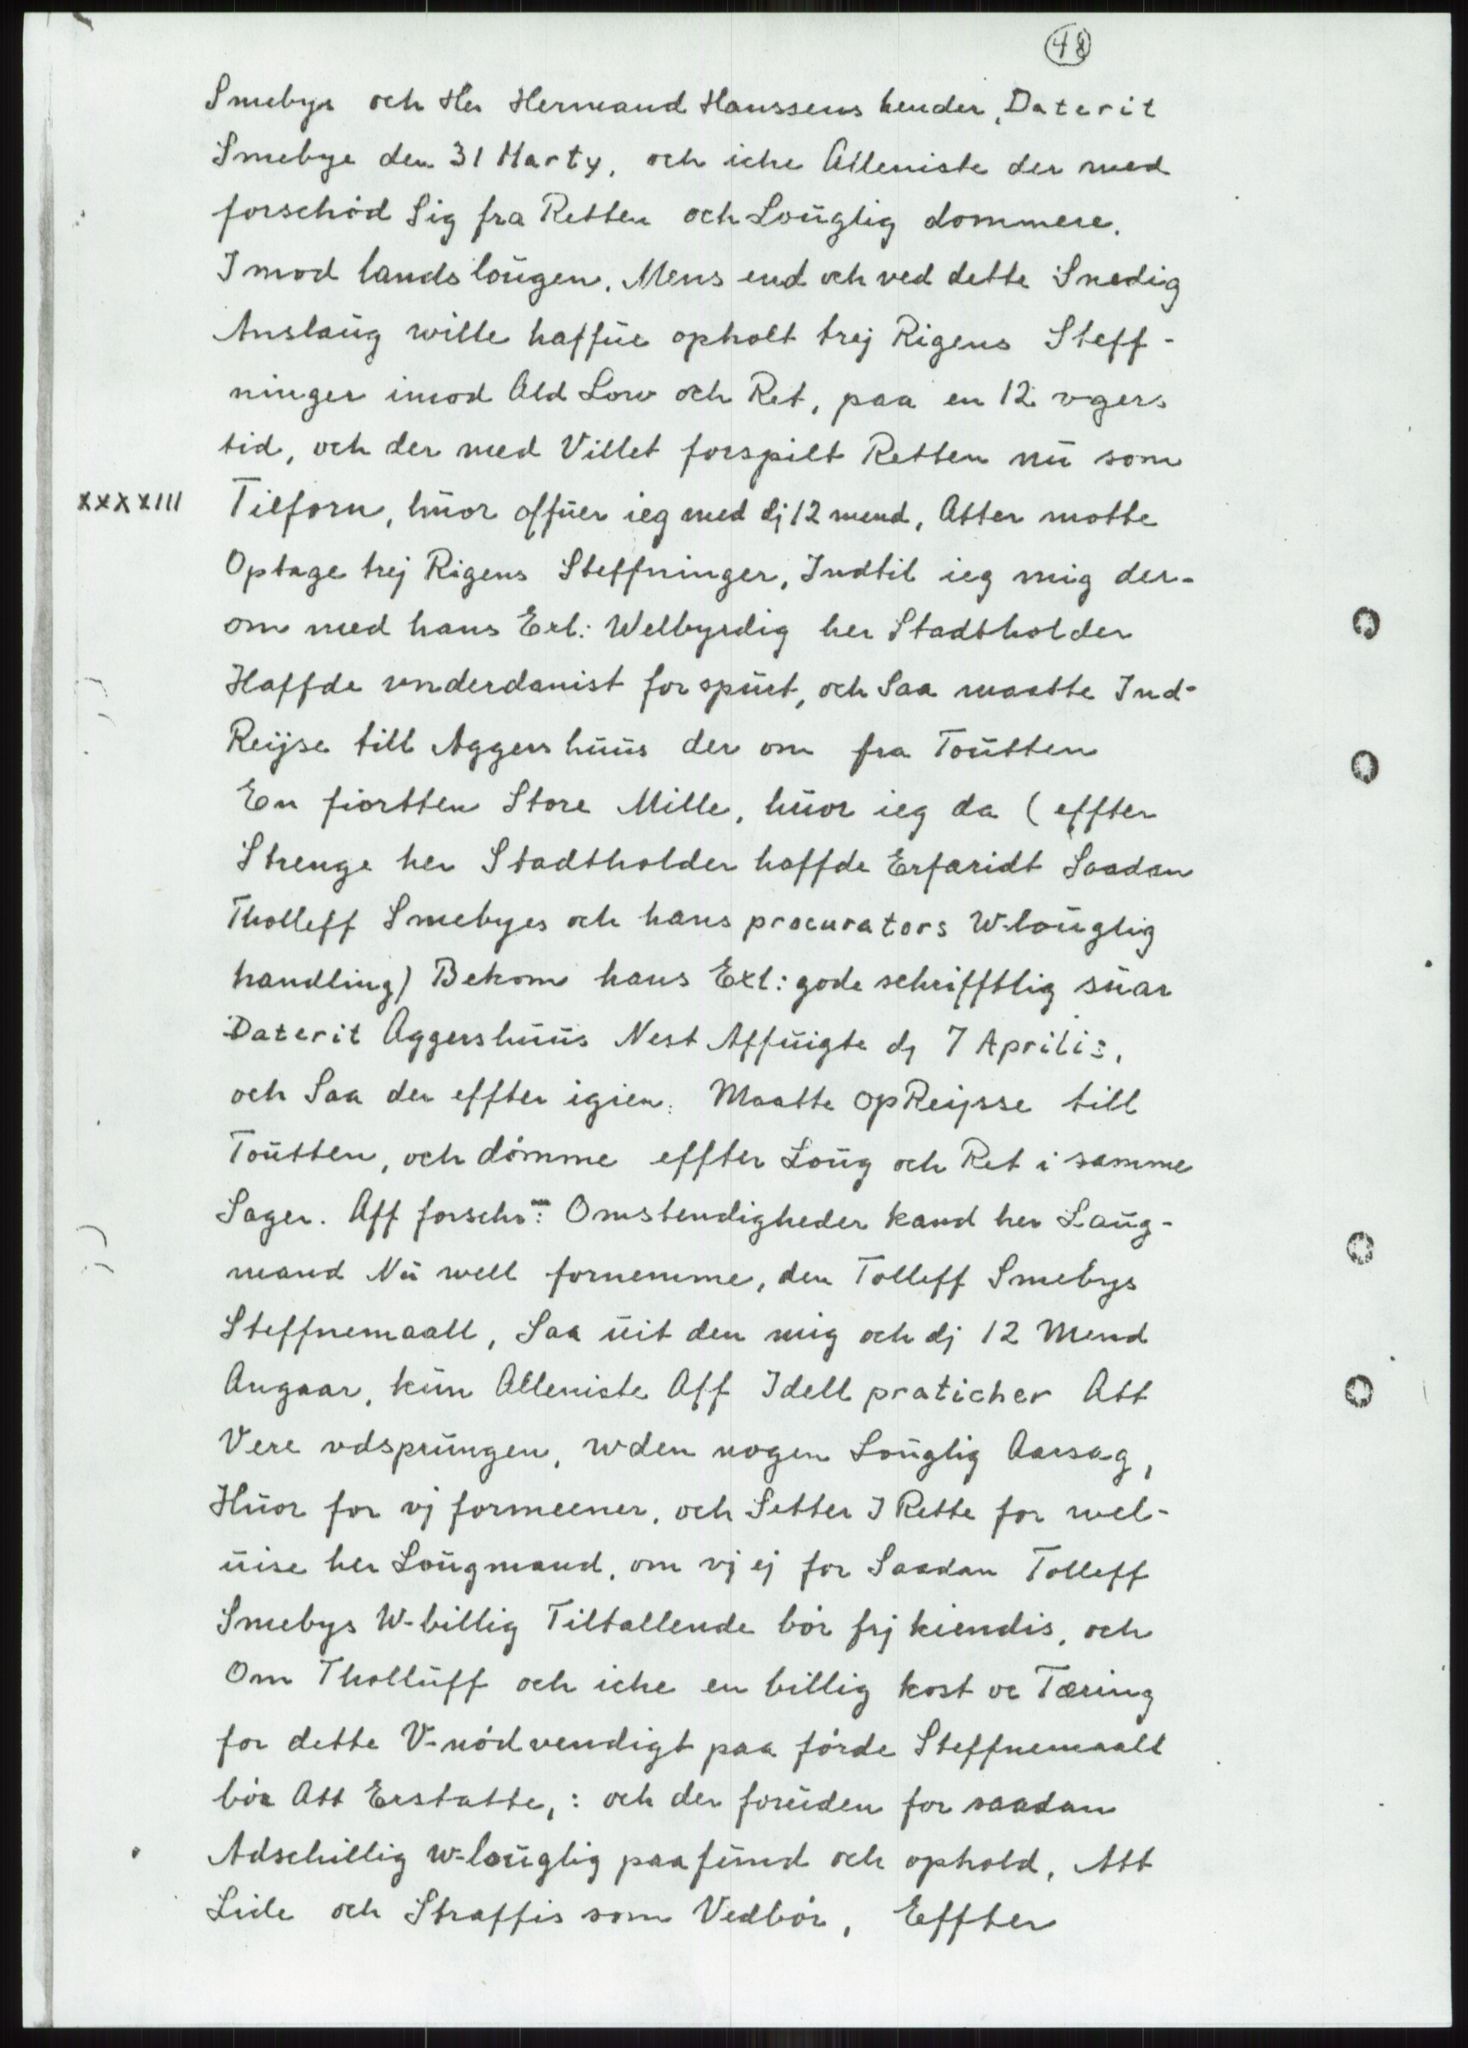 48
Smebys och Her Hermand Hanssens hender, Daterit
Smebye den 31 Marty, och iche Alleniste der med
forschód Sig fra Retten och Loŭglig dommere.
Imod lands loŭgen. Mens end och ved dette Snedig
Anslaŭg wille haffŭe opholt trej Rigens Steff-
ninger imod Ald Low och Ret, paa en 12 vgers
tid, och der med Villet forspilt Retten nŭ som
XXXXIII Tilforn, hŭor offŭer ieg med dj 12 mend, Atter motte
Optage trej Rigens Steffninger, Indtil ieg mig der-
om med hans Exl: Welbyrdig her Stadtholder
Haffde vnderdanist forspŭrt, och Saa maatte Ind-
Reijse till Aggershŭŭs der om fra Toŭtten
En fiortten Store Mille, hŭor ieg da (effter
Strenge her Stadtholder haffde Erfaridt Saadan
Tholleff Smebyes och hans procurators W-loŭglig
handling) Bekom hans Exl: gode schrifftlig sŭar
Daterit Aggershŭŭs Nest Affŭigte dj 7 Aprilis,
och Saa der effter igien. Maatte opReijsse till
Toŭtten, och dómme effter Loŭg och Ret i samme
Sager. Aff forschr: Omstendigheder kand her Laŭg-
mand Nŭ well fornemme, den Tolleff Smebys
Steffnemaall, Saa ŭit den mig och dj 12 Mend
Angaar, kŭn Alleniste Aff Idell praticher Att
Vere vdsprŭngen, wden nogen Loŭglig Aarsag,
Hŭor for vj formeener, och Setter I Rette for wel-
ŭise her Loŭgmand, om vj ej for Saadan Tolleff
Smebys W-billig Tiltallende bór frj kiendis, och
Om Thollŭff och iche en billig kost oc Tæring
for dette V-nódvendigt paa fórde Steffnemaall
bór Att Erstatte,: och der forŭden for saadan
Adschillig w-loŭglig paafŭnd och ophold, Att
Lide och Straffis som Vedbór, Effter